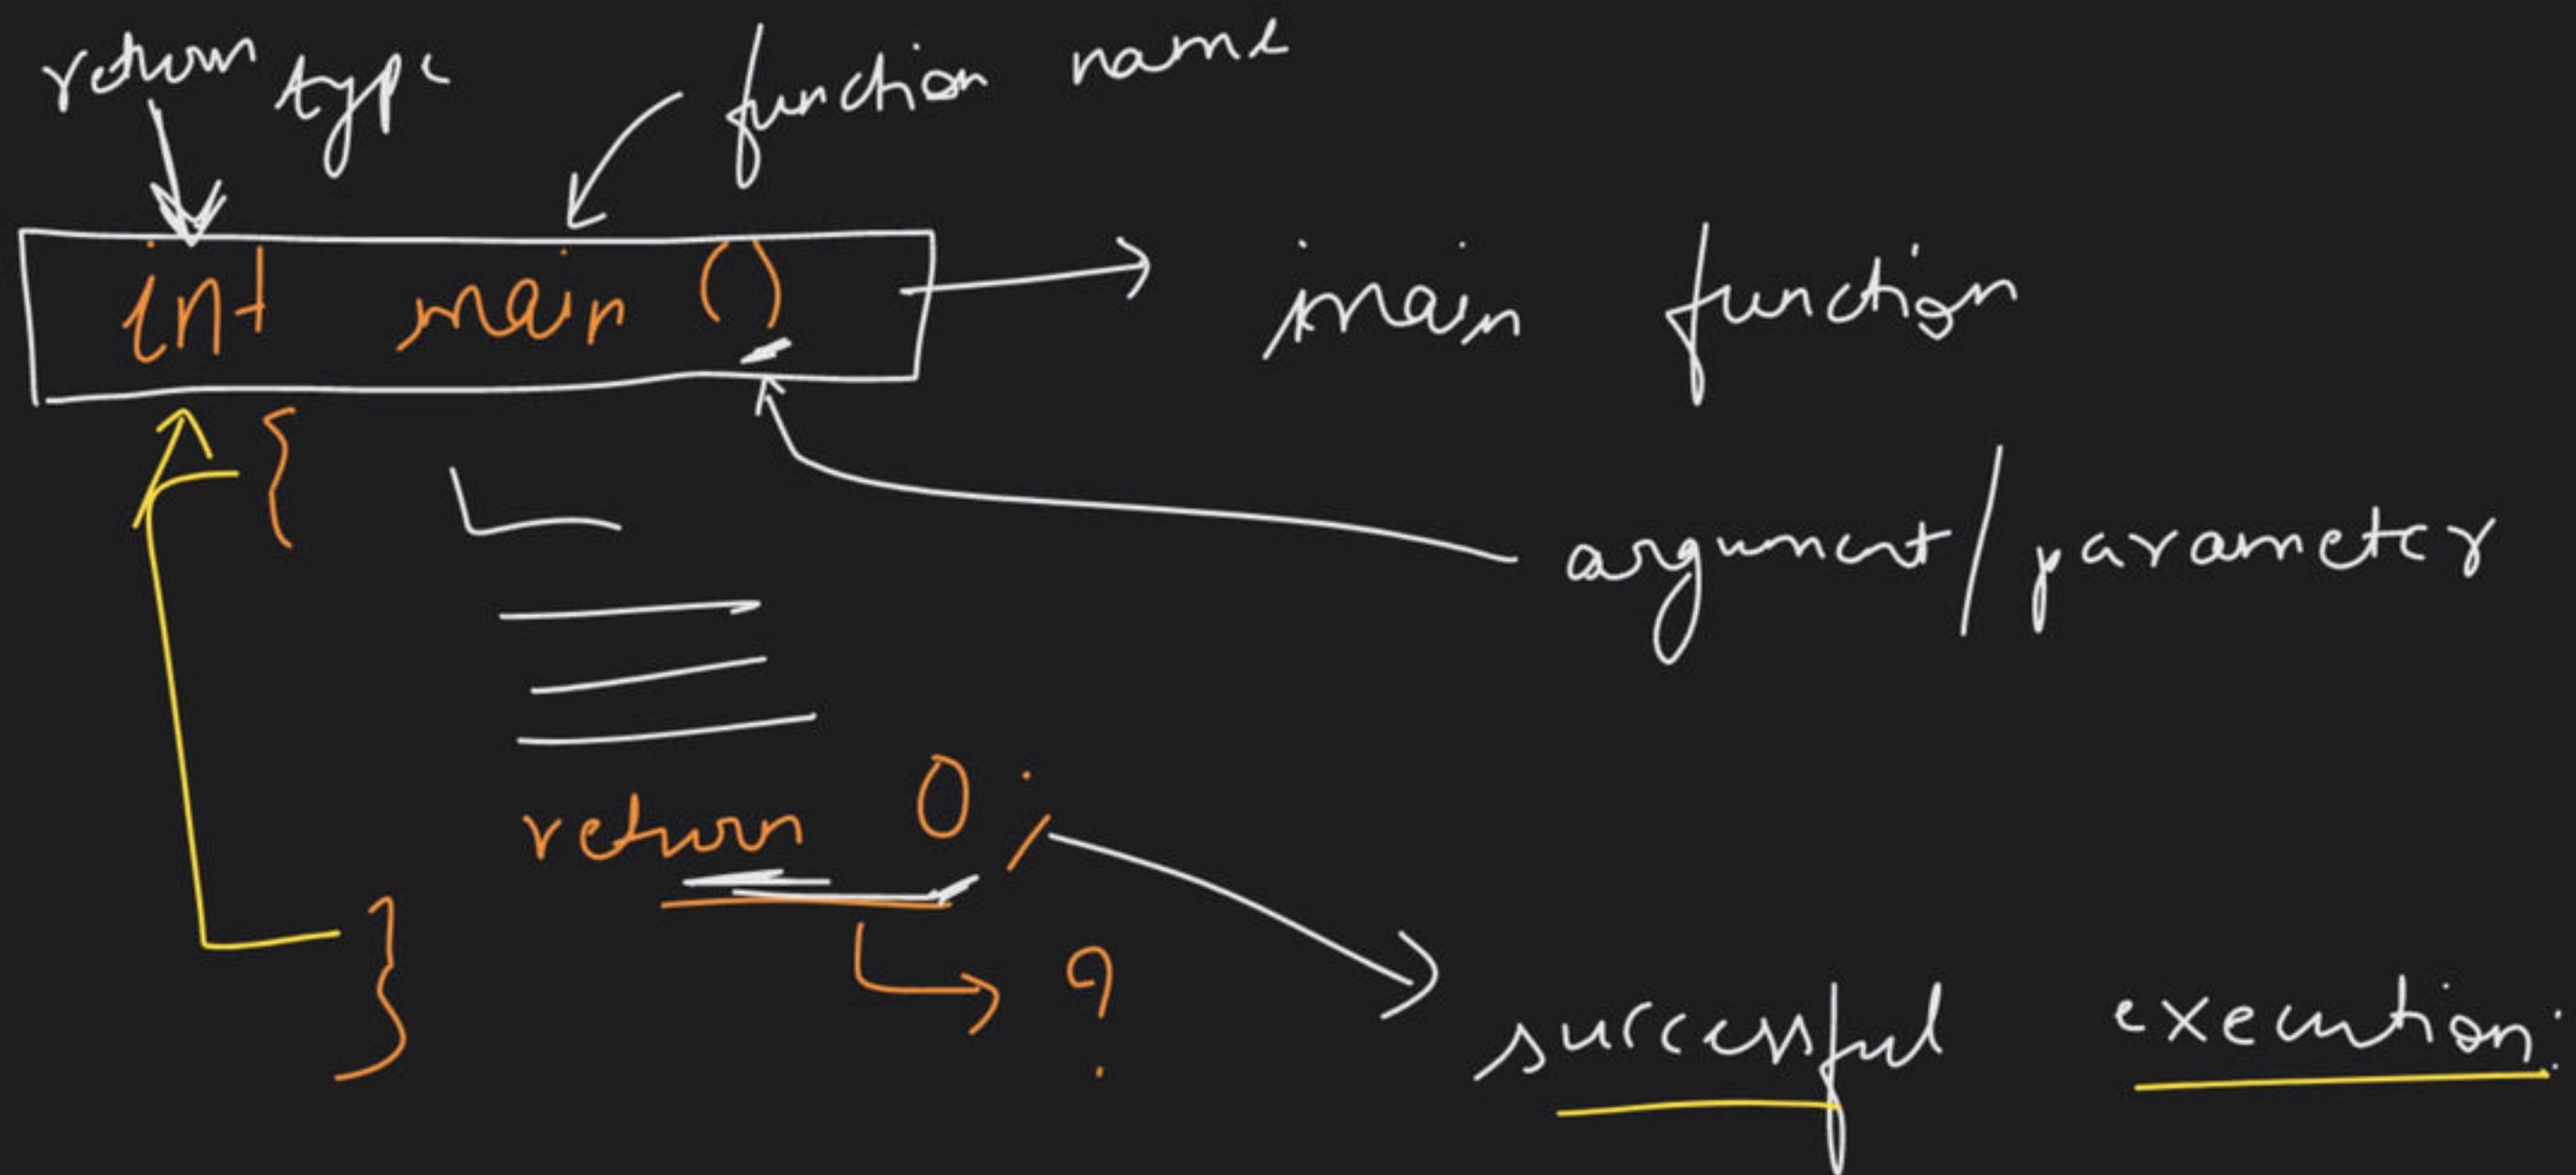 return type
function name
int main ()
main function
{
argument/parameter
return 0;
}
?
successful execution: